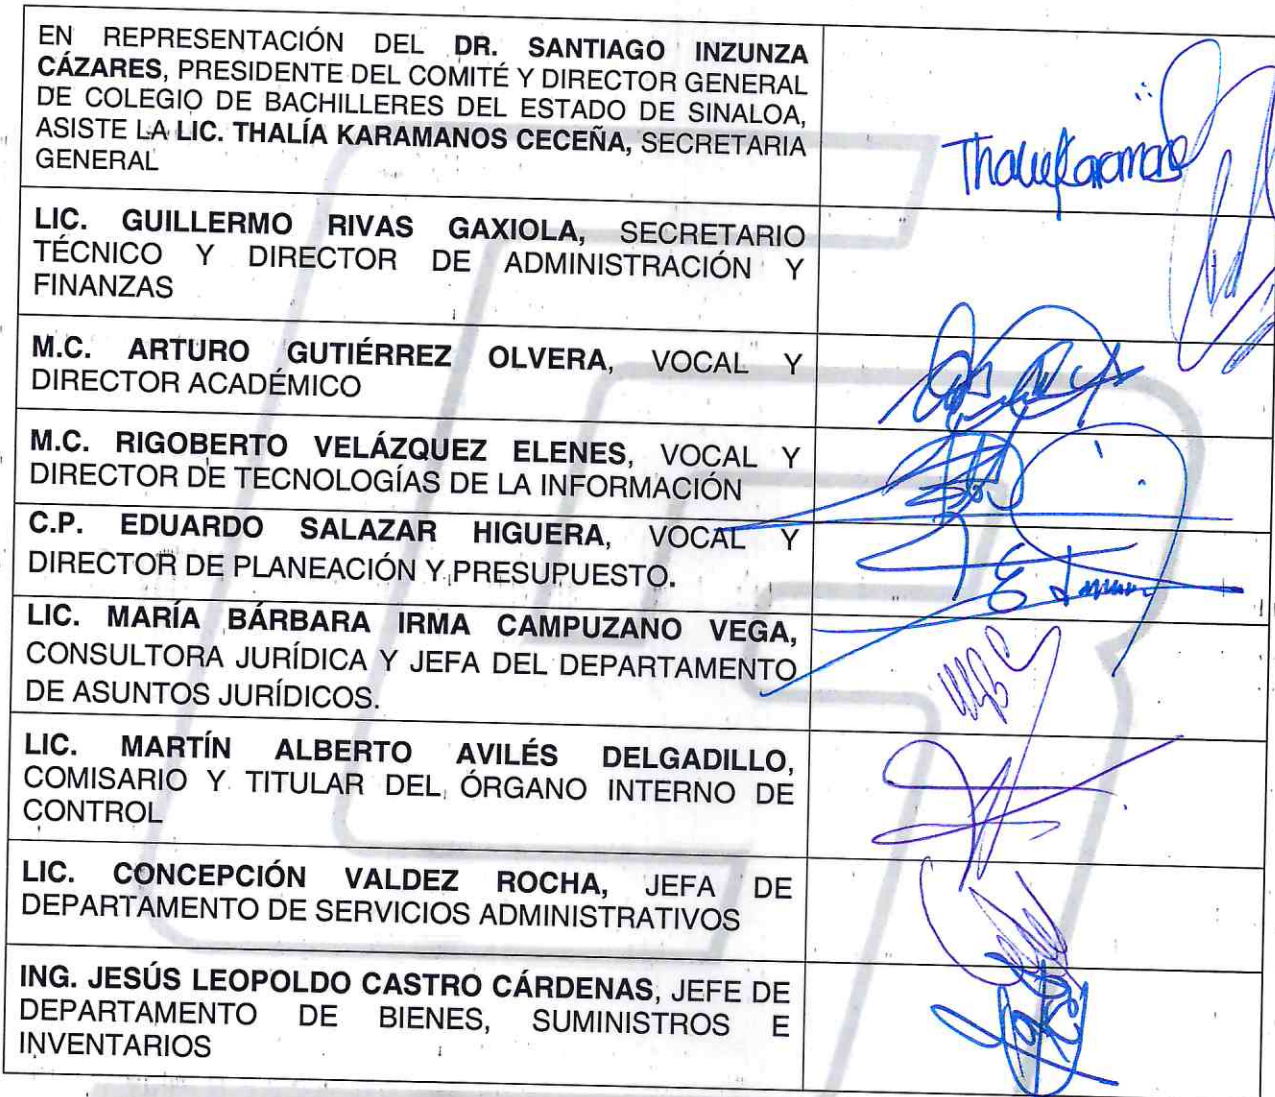 EN REPRESENTACIÓN DEL DR. SANTIAGO INZUNZA
CÁZARES, PRESIDENTE DEL COMITÉ Y DIRECTOR GENERAL
DE COLEGIO DE BACHILLERES DEL ESTADO DE SINALOA,
ASISTE LA LIC. THALÍA KARAMANOS CECEÑA, SECRETARIA
GENERAL
LIC. GUILLERMO RIVAS GAXIOLA, SECRETARIO
TÉCNICO Y DIRECTOR DE ADMINISTRACIÓN Y
FINANZAS
M.C. ARTURO GUTIÉRREZ OLVERA, VOCAL Y
DIRECTOR ACADÉMICO
M.C. RIGOBERTO VELÁZQUEZ ELENES, VOCAL Y
DIRECTOR DE TECNOLOGÍAS DE LA INFORMACIÓN
C.P. EDUARDO SALAZAR HIGUERA, VOCAL Y
DIRECTOR DE PLANEACIÓN Y PRESUPUESTO.
LIC. MARÍA BÁRBARA IRMA CAMPUZANO VEGA,
CONSULTORA JURÍDICA Y JEFA DEL DEPARTAMENTO
DE ASUNTOS JURÍDICOS.
LIC. MARTÍN ALBERTO AVILÉS DELGADILLO,
COMISARIO Y TITULAR DEL ÓRGANO INTERNO DE
CONTROL
LIC. CONCEPCIÓN VALDEZ ROCHA, JEFA DE
DEPARTAMENTO DE SERVICIOS ADMINISTRATIVOS
ING. JESÚS LEOPOLDO CASTRO CÁRDENAS, JEFE DE
DEPARTAMENTO DE BIENES, SUMINISTROS E
INVENTARIOS